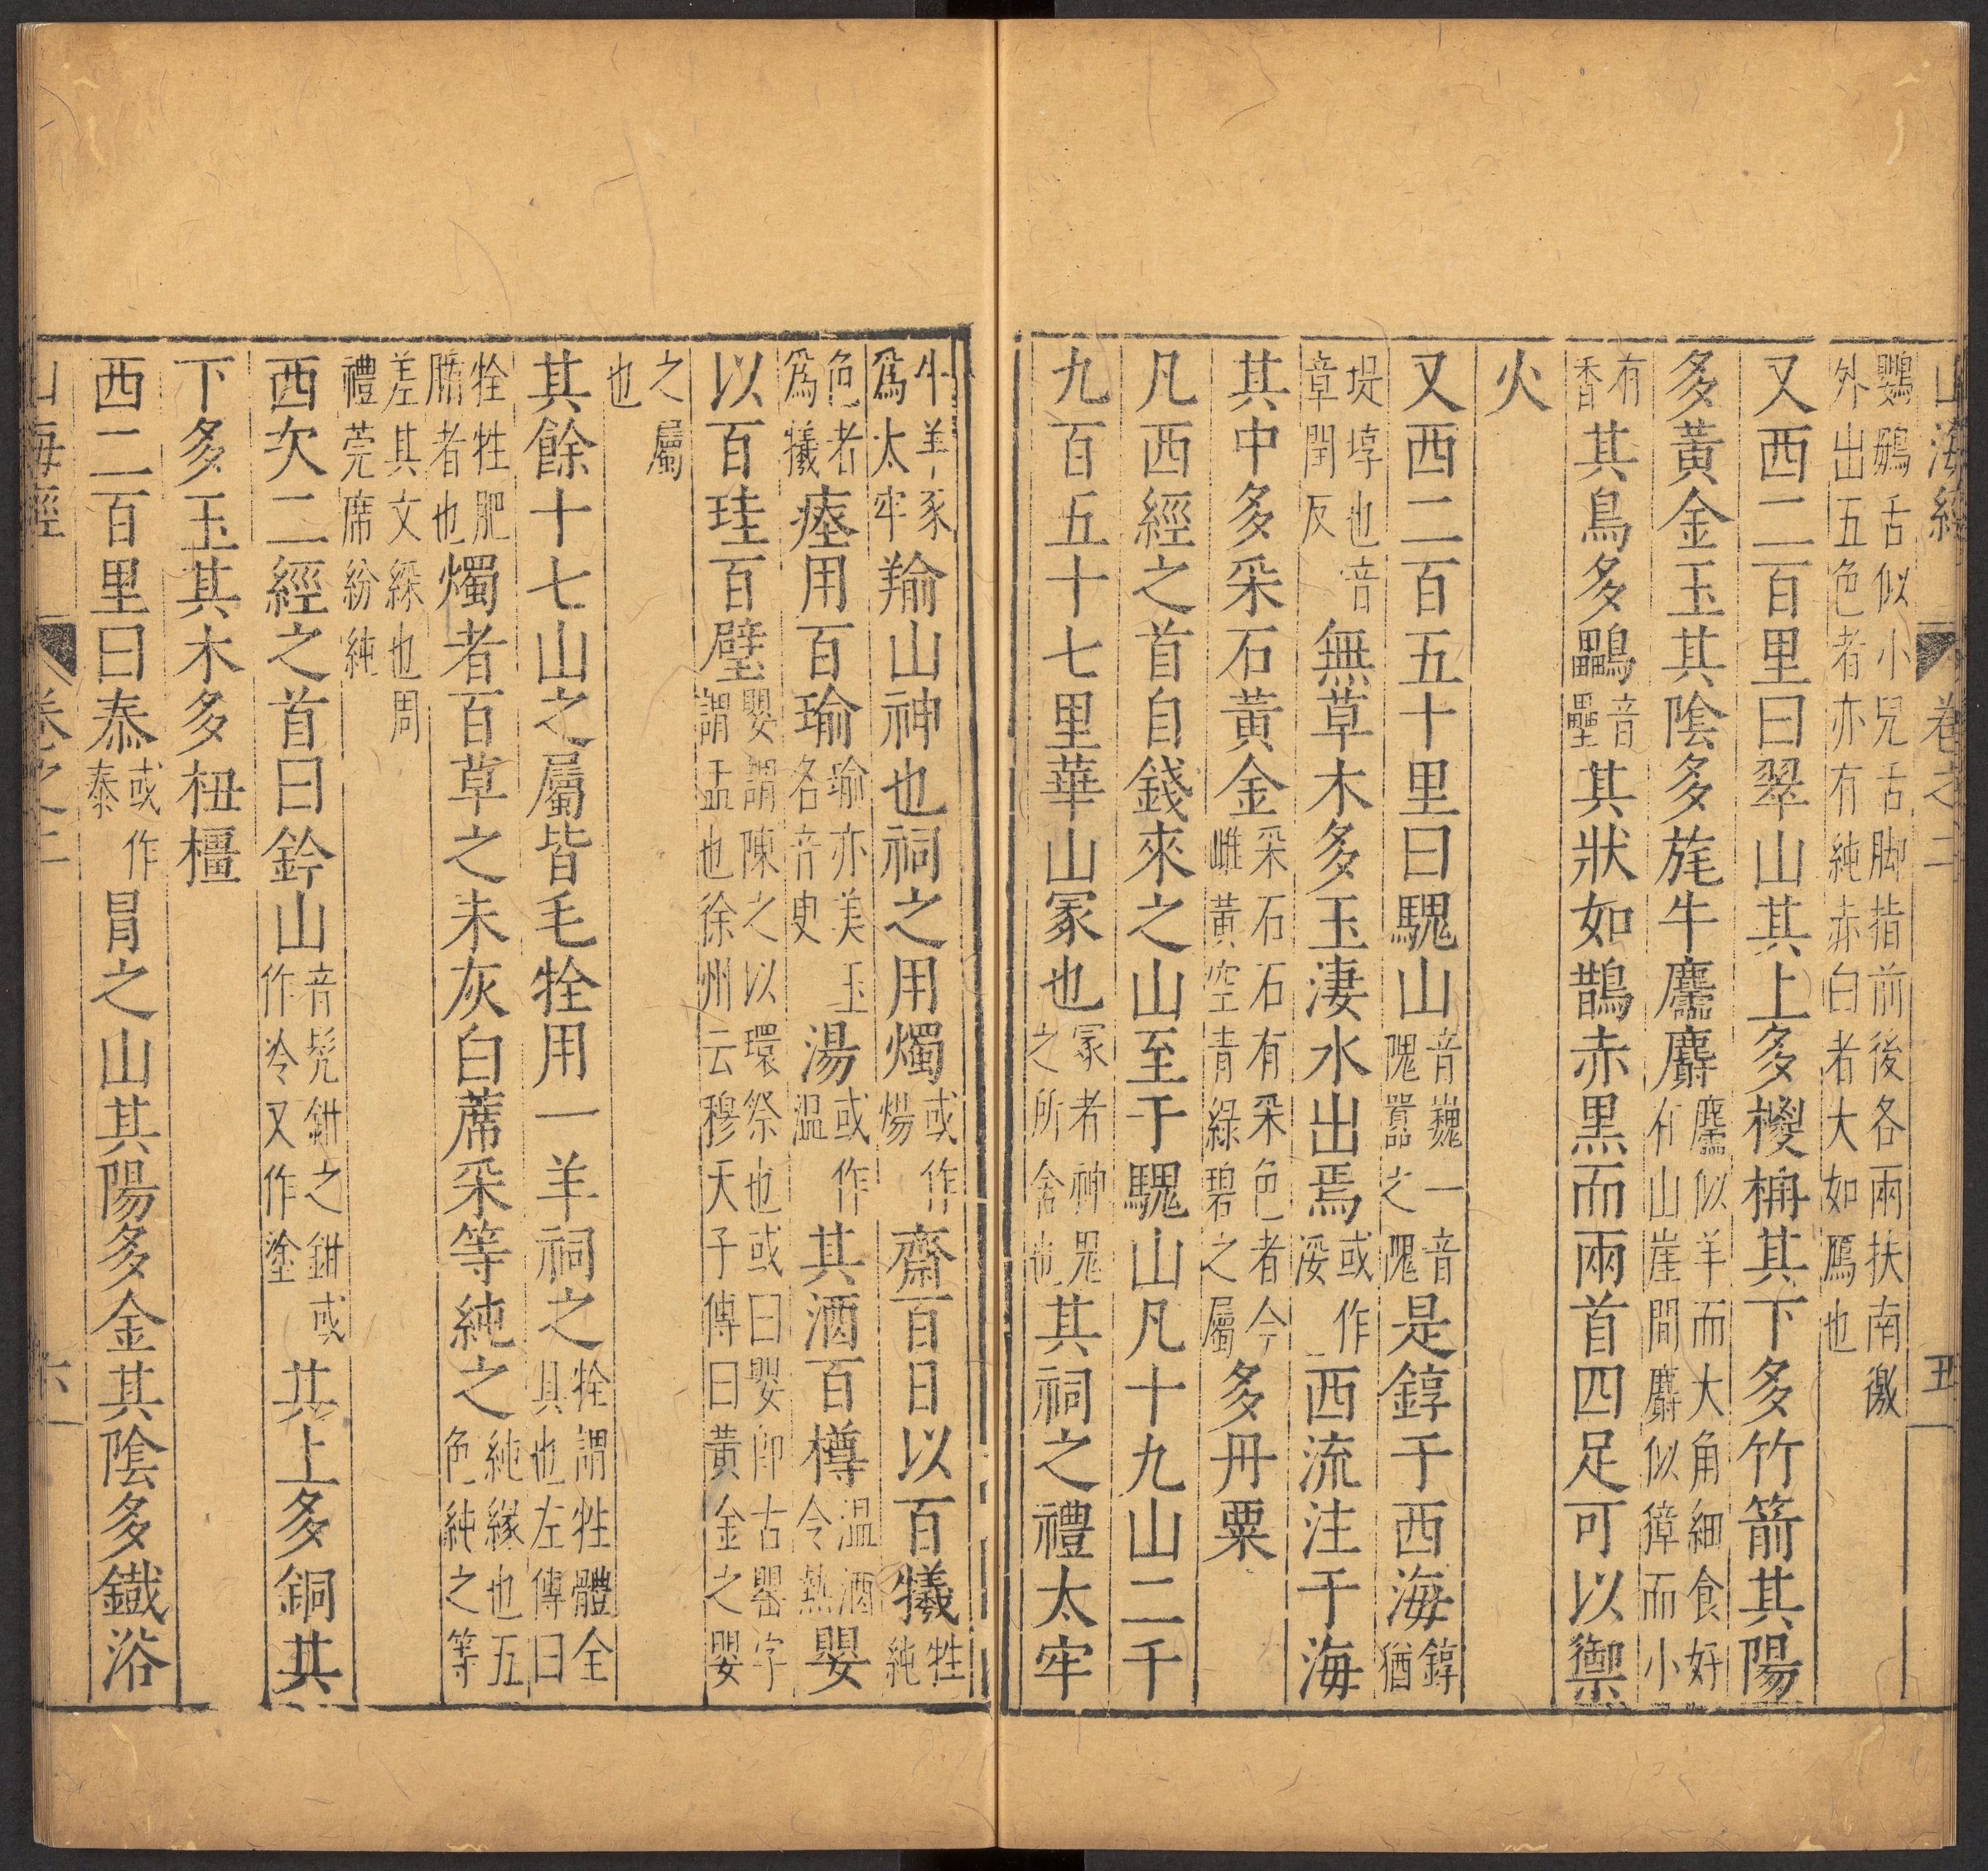 山海經 卷之二 五
鸚鵡舌似小兒舌脚指前後各兩扶南徼
外出五色者亦有純赤白者大如鴈也
又西二百里曰翠山其上多椶枏其下多竹箭其陽
多黃金玉其陰多旄牛麢麝麢似羊而大角細食好
在山崖間麝似獐而小
有香其鳥多鸓音壘其狀如鵲赤黑而兩首四足可以禦
火
又西二百五十里曰騩山音巍一音隗嚚之隗是錞于西海錞猶
堤埻也音章閏反無草木多玉淒水出焉或作浽西流注于海
其中多采石黃金采石石有采色者今雌黃空青綠碧之屬多丹粟
凡西經之首自錢來之山至于騩山凡十九山二千
九百五十七里華山冢也冢者神鬼之所舍也其祠之禮太牢
牛羊豕爲太牢羭山神也祠之用燭或作煬齋百日以百犧牲純
色者爲犧瘞用百瑜瑜亦美玉名音臾湯或作温其酒百樽温酒令熱嬰
以百珪百璧嬰謂陳之以環祭也或曰嬰即古罌字
謂盂也徐州云穆天子傳曰黃金之嬰
之屬也
其餘十七山之屬皆毛牷用一羊祠之牷謂牲體全具也左傳曰
牷牲肥腯者也燭者百草之未灰白蓆采等純之純緣也五色純之等
差其文綵也周禮莞席紛純
西次二經之首曰鈐山音髠鉗之鉗或作冷又作塗其上多銅其
下多玉其木多杻橿
西二百里曰泰或作泰冒之山其陽多金其陰多鐵浴
山海經 卷之二 六